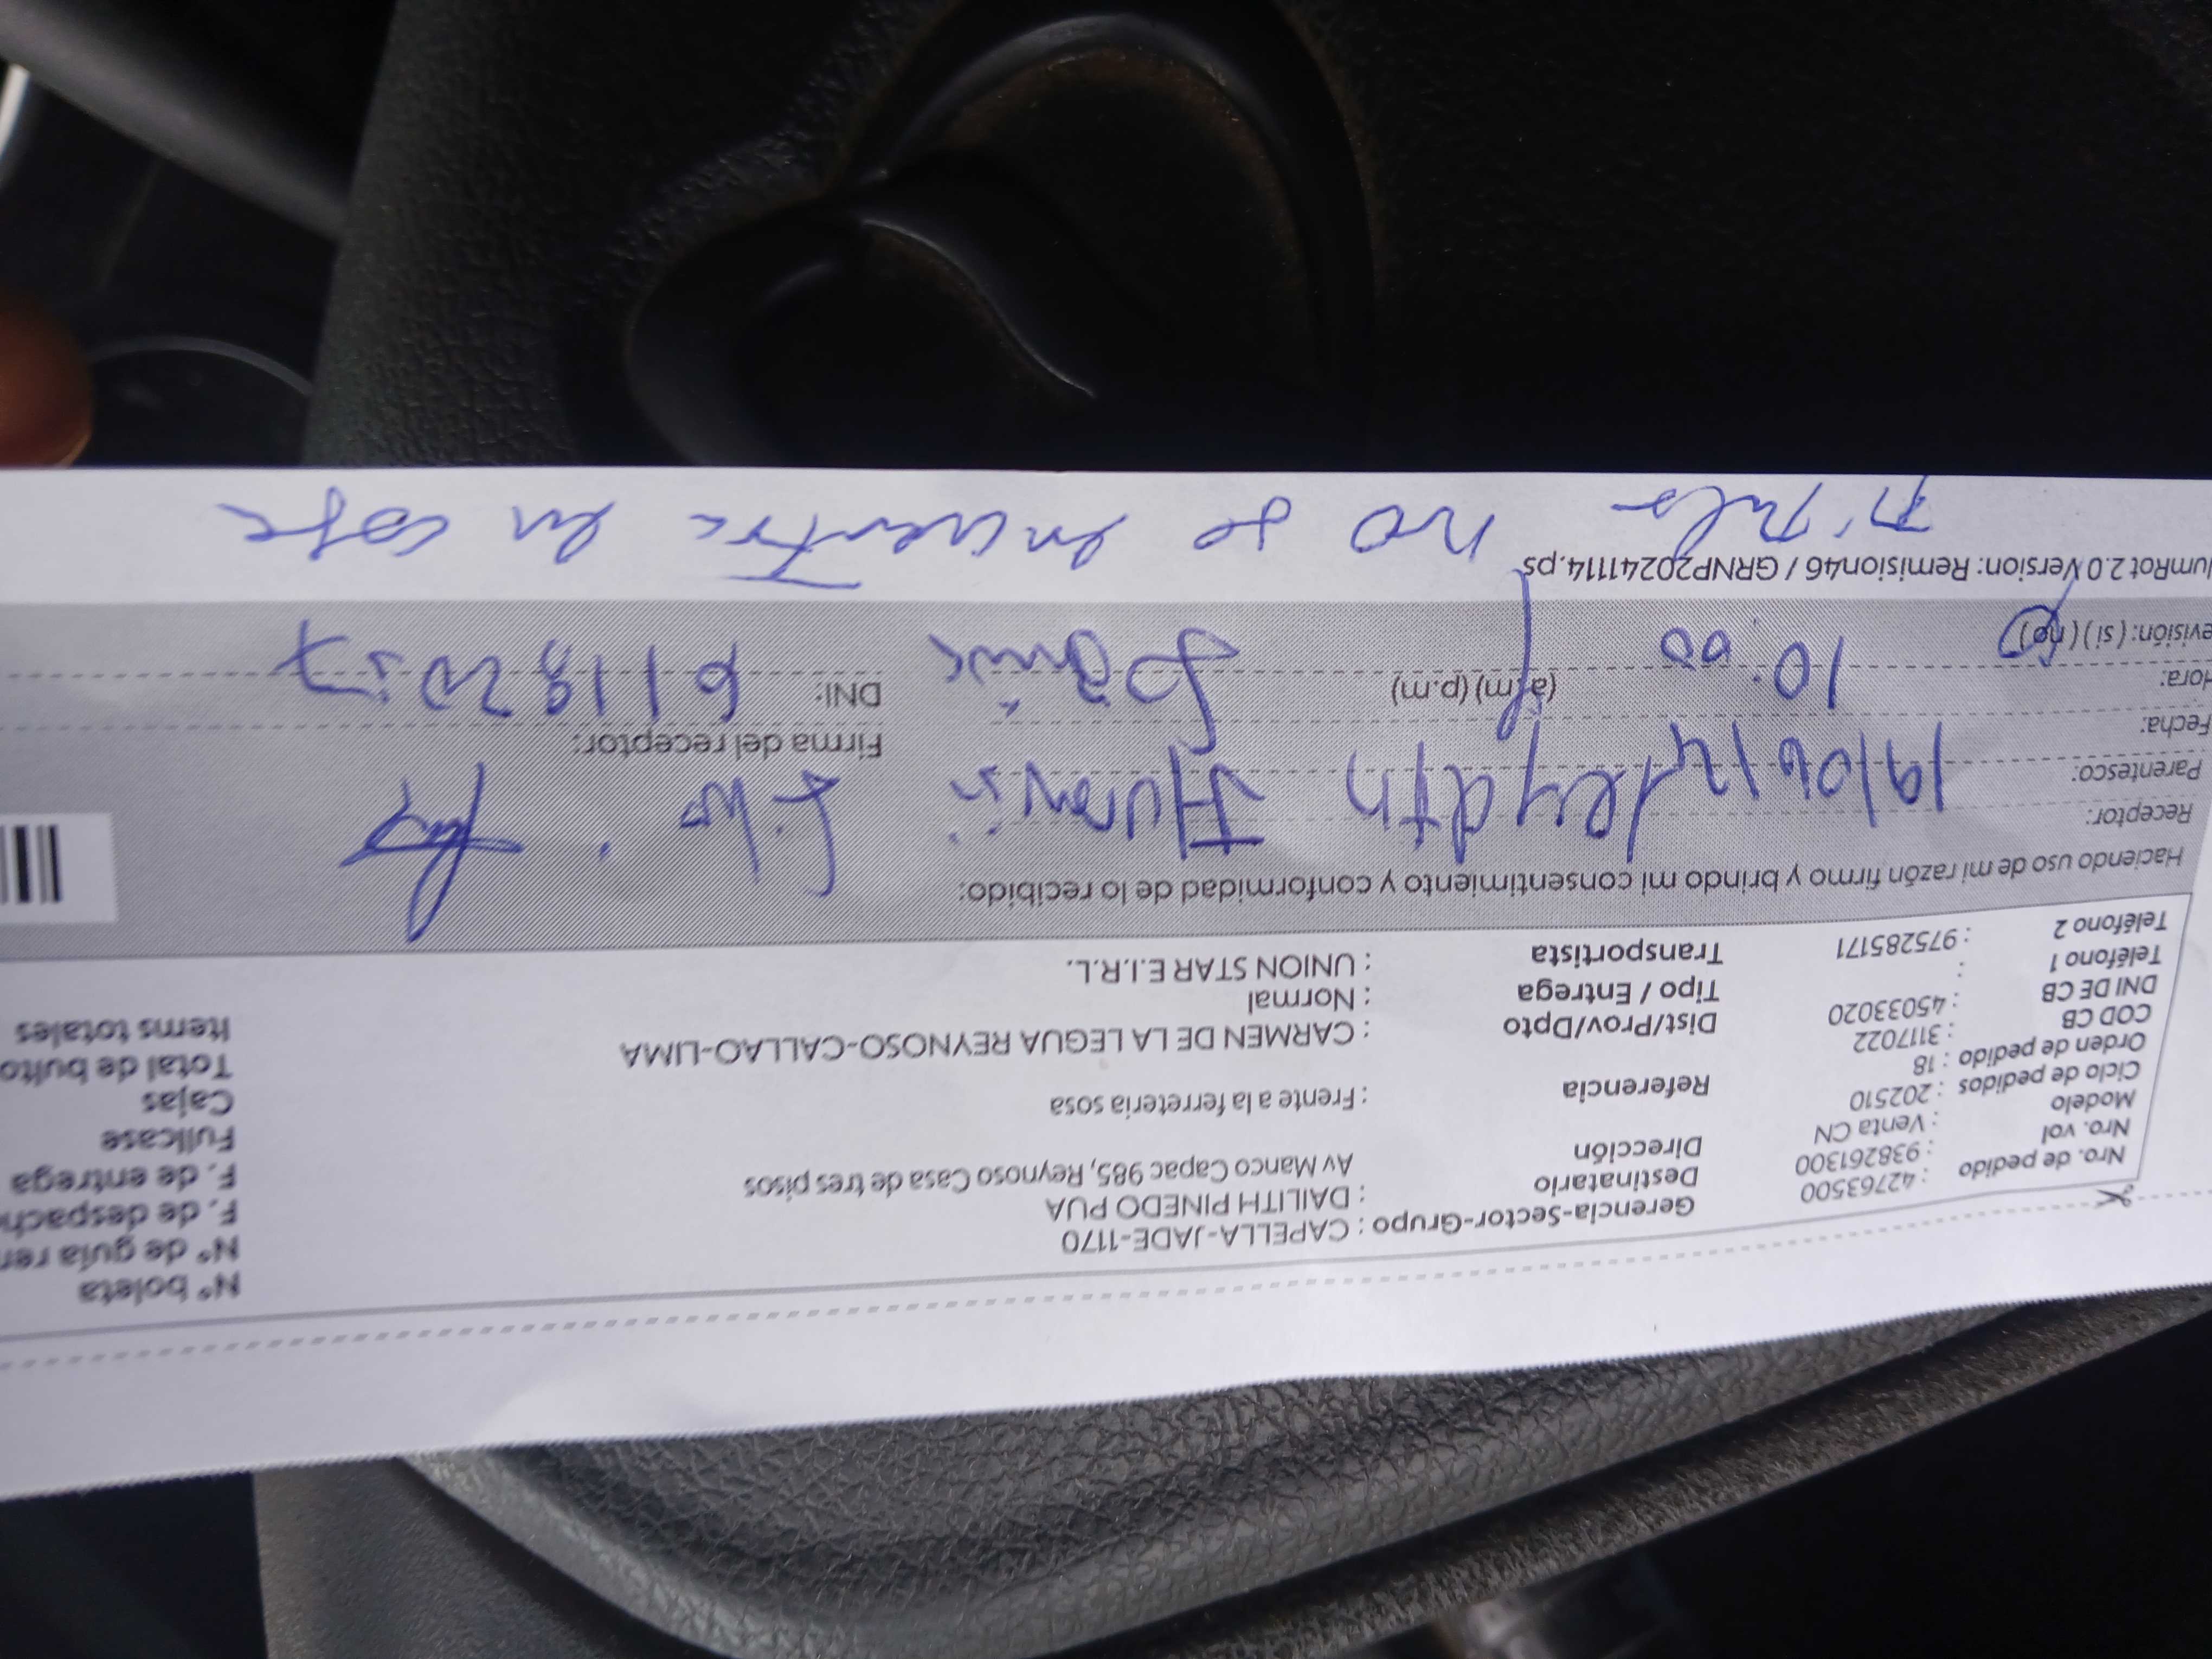 Nro. de pedido : 42763500 Gerencia-Sector-Grupo : CAPELLA-JADE-1170 N° boleta
Nro. vol : 938261300 Destinatario : DAILITH PINEDO PUA N° de guía
Modelo : Venta CN Dirección Av Manco Capac 985, Reynoso Casa de tres pisos F. de despacho
Ciclo de pedidos : 202510 F. de entrega
Orden de pedido : 18 Referencia : Frente a la ferreteria sosa Fullcase
COD CB : 3117022 Cajas
DNI DE CB : 45033020 Dist/Prov/Dpto : CARMEN DE LA LEGUA REYNOSO-CALLAO-LIMA Total de bulto
Teléfono 1 : Tipo / Entrega : Normal Items totales
Teléfono 2 : 975285171 Transportista : UNION STAR E.I.R.L.
Haciendo uso de mi razón firmo y brindo mi consentimiento y conformidad de lo recibido:
Receptor:
Parentesco: Firma del receptor:
Fecha:
Hora: 10:00 (a.m) (p.m) DNI:
evisión: (si) (no)
umRot 2.0 Version: Remision46 / GRNP20241114.ps
no se encuentra en casa